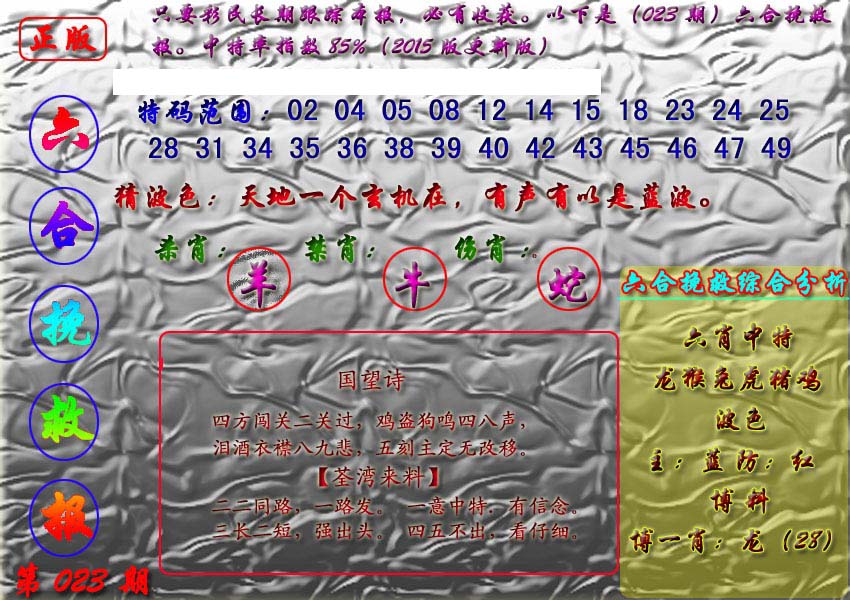 正版
只要彩民长期跟踪本报，必有收获。以下是（023期）六合挽救
报。中特率指数85%（2015版更新版）
六
合
挽
救
报
第023期
特码范围：02 04 05 08 12 14 15 18 23 24 25
28 31 34 35 36 38 39 40 42 43 45 46 47 49
猜波色：天地一个玄机在，有声有以是蓝波。
杀肖：羊 禁肖：牛 伤肖：蛇
国望诗
四方闯关二关过，鸡盗狗鸣四八声，
泪酒衣襟八九悲，五刻主定无改移。
【荃湾来料】
二二同路，一路发。 一意中特．有信念。
三长二短，强出头。 四五不出，看仔细。
六合挽救综合分析
六肖中特
龙猴兔虎猪鸡
波色
主：蓝防：红
博料
博一肖：龙（28）